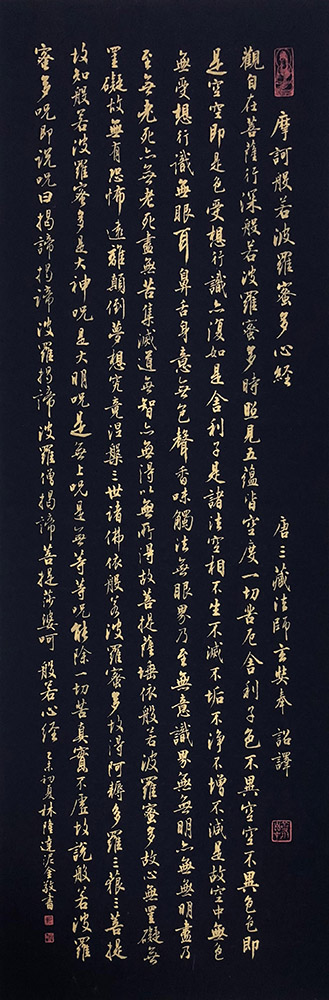 摩訶般若波羅蜜多心經 唐三藏法師玄奘奉 詔譯
觀自在菩薩行深般若波羅蜜多時照見五蘊皆空度一切苦厄舍利子色不異空空不異色色即
是空空即是色受想行識亦復如是舍利子是諸法空相不生不滅不垢不淨不增不減是故空中無色
無受想行識無眼耳鼻舌身意無色聲香味觸法無眼界乃至無意識界無無明亦無無明盡乃
至無老死亦無老死盡無苦集滅道無智亦無得以無所得故菩提薩埵依般若波羅蜜多故心無罣礙無
罣礙故無有恐怖遠離顛倒夢想究竟涅槃三世諸佛依般若波羅蜜多故得阿耨多羅三藐三菩提
故知般若波羅蜜多是大神咒是大明咒是無上咒是無等等咒能除一切苦真實不虛故說般若波羅
蜜多咒即說咒曰揭諦揭諦波羅揭諦波羅僧揭諦菩提莎婆呵 般若心經 初夏林隆達泥金敬書